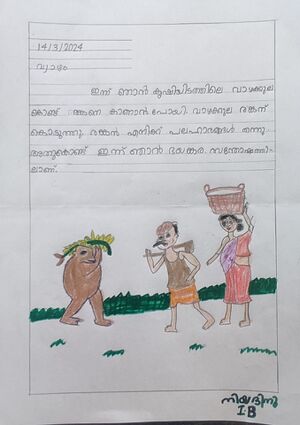 14/3/2024
വ്യാഴം
ഇന്ന് ഞാൻ കൃഷിയിടത്തിലെ വാഴക്കുല
കൊണ്ട് രങ്കനെ കാണാൻ പോയി. വാഴക്കുല രങ്കന്
കൊടുത്തു. രങ്കൻ എനിക്ക് പലഹാരങ്ങൾ തന്നു.
അതുകൊണ്ട് ഇന്ന് ഞാൻ ഭയങ്കര സന്തോഷത്തി
ലാണ്.
നിയ ദിനു
I B